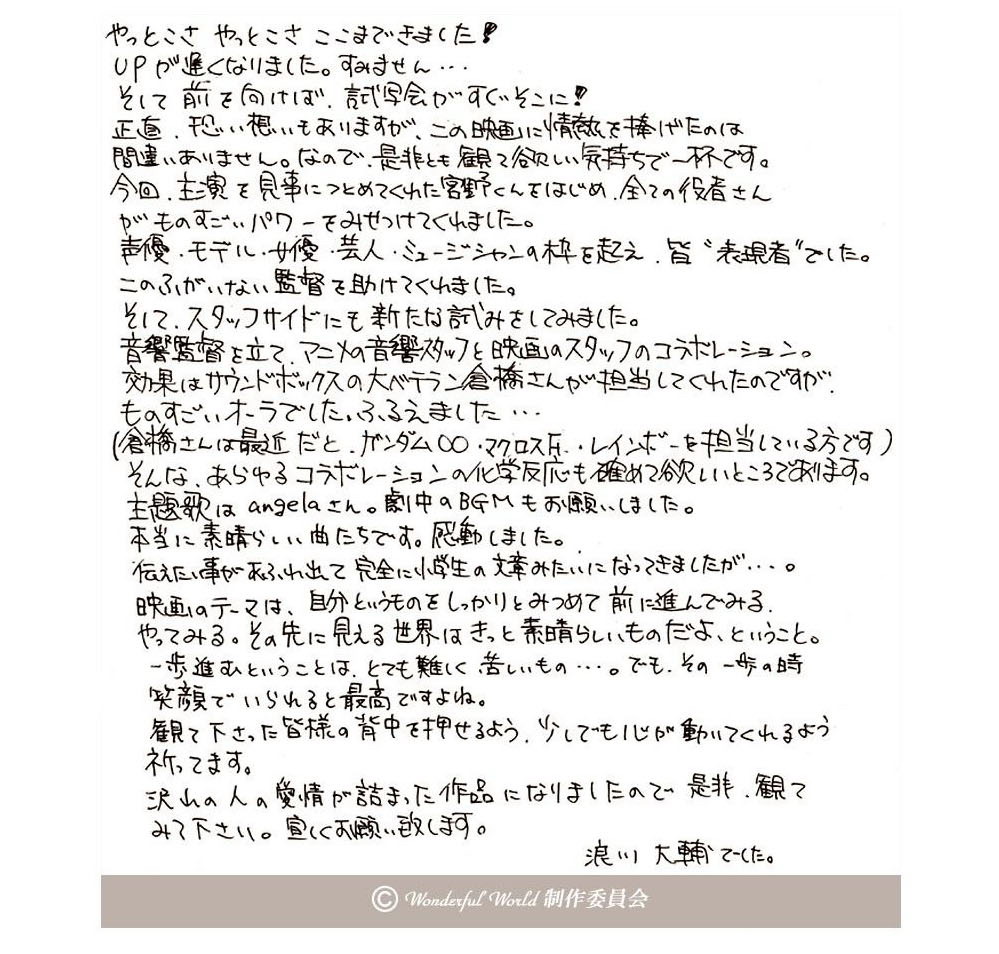 やっとこさ やっとこさ ここまできました!
UPが遅くなりました。すみません…
そして 前を向けば、試写会がすぐそこに!
正直、恐い想いもありますが、この映画に情熱を捧げたのは
間違いありません。なので、是非とも観て欲しい気持ちで一杯です。
今回、主演を見事につとめてくれた宮野くんをはじめ、全ての役者さん
がものすごいパワーをみせつけてくれました。
声優・モデル・女優・芸人・ミュージシャンの枠を超え、皆“表現者”でした。
このふがいない監督を助けてくれました。
そして、スタッフサイドにも新たな試みをしてみました。
音響監督を立て、アニメの音響スタッフと映画のスタッフのコラボレーション。
効果はサウンドボックスの大ベテラン倉橋さんが担当してくれたのですが、
ものすごいオーラでした、ふるえました…
(倉橋さんは最近だと、ガンダム00・マクロスF・レインボーを担当している方です)
そんな、あらゆるコラボレーションの化学反応も確めて欲しいところであります。
主題歌はangelaさん。劇中のBGMもお願いしました。
本当に素晴らしい曲たちです。感動しました。
伝えたい事があふれ出て完全に小学生の文章みたいになってきましたが…。
映画のテーマは、自分というものをしっかりとみつめて前に進んでみる、
やってみる。その先に見える世界はきっと素晴らしいものだよ、ということ。
一歩進むということは、とても難しく苦しいもの…。でも、その一歩の時
笑顔でいられると最高ですよね。
観て下さった皆様の背中を押せるよう、少しでも心が動いてくれるよう
祈ってます。
沢山の人の愛情が詰まった作品になりましたので是非、観て
みて下さい。宜しくお願い致します。
浪川 大輔でした。
© Wonderful World 制作委員会